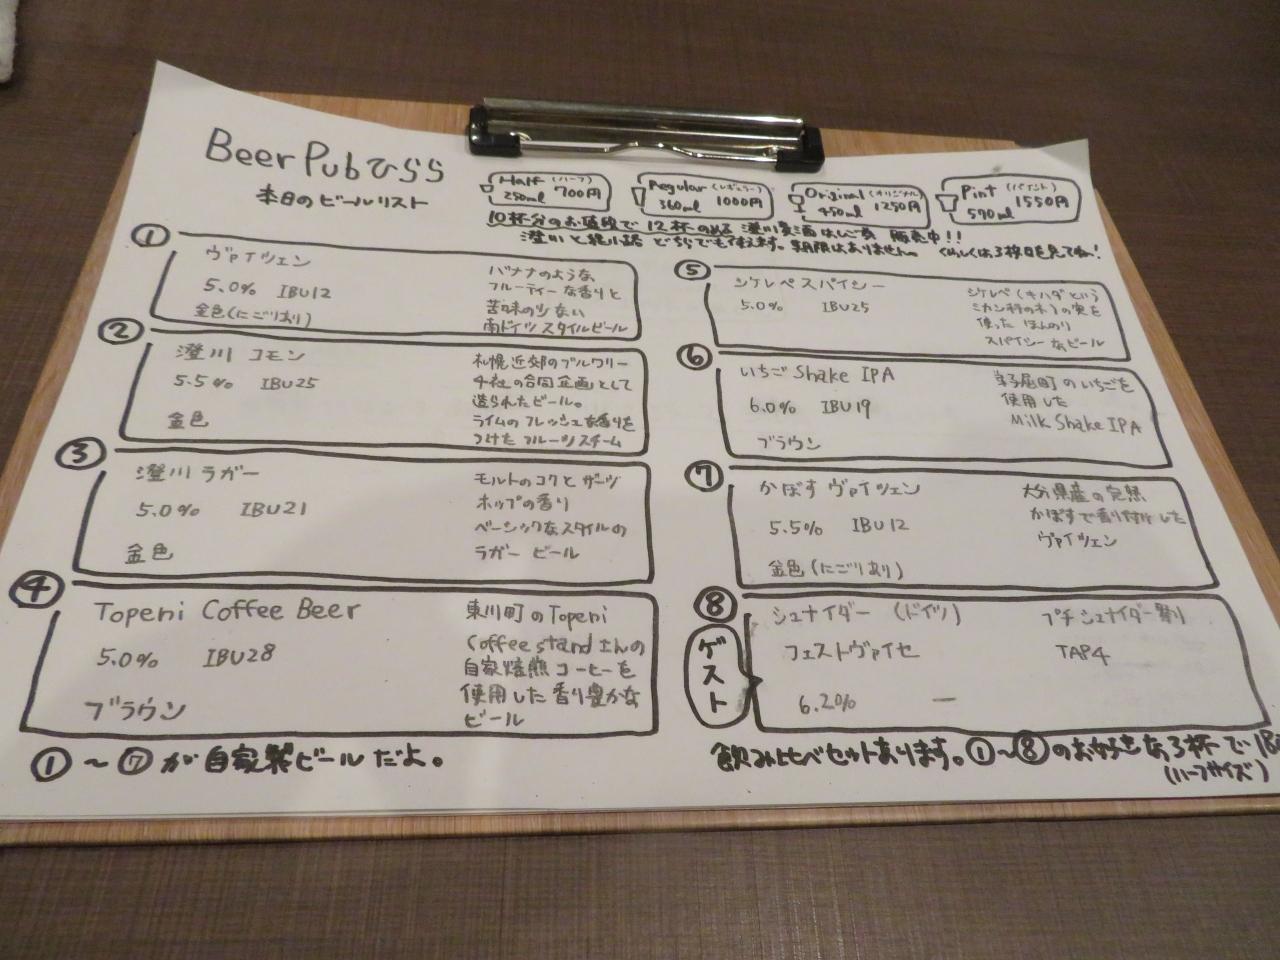 Beer Pub ひらら
本日のビールリスト
Half (ハーフ)
250ml 700円
Regular (レギュラー)
360ml 1000円
Original (オリジナル)
450ml 1250円
Pint (パイント)
570ml 1550円
10杯分のお値段で12杯のめる 澄川麦酒 販売中!!
澄川と どちらでも使えます。期限はありません。 くわしくは3枚目を見てね!
①
ヴァイツェン
5.0% IBU12
金色(にごりあり)
バナナのような
フルーティーな香りと
苦味の少ない
南ドイツスタイルビール
②
澄川 コモン
5.5% IBU25
金色
札幌近郊のブルワリー
4社の合同企画として
造られたビール。
ライムのフレッシュな香りを
つけた フルーツスチーム
③
澄川 ラガー
5.0% IBU21
金色
モルトのコクと ザーツ
ホップの香り
ベーシックなスタイルの
ラガー ビール
④
Topeni Coffee Beer
5.0% IBU28
ブラウン
東川町のTopeni
Coffee standさんの
自家焙煎コーヒーを
使用した香り豊かな
ビール
①~⑦が自家製ビールだよ。
⑤
シケレペスパイシー
5.0% IBU25
シケレペ(キハダという
ミカン科の木)の実を
使った ほんのり
スパイシーなビール
⑥
いちごShake IPA
6.0% IBU19
ブラウン
弟子屈町のいちごを
使用した
Milk Shake IPA
⑦
かぼす ヴァイツェン
5.5% IBU12
金色(にごりあり)
大分県産の完熟
かぼすで香り付けした
ヴァイツェン
⑧
ゲスト
シュナイダー (ドイツ)
フェストヴァイセ
6.2% ー
プチシュナイダー祭り
TAP4
飲み比べセットあります。①~⑧のお好きな3杯で18
(ハーフサイズ)